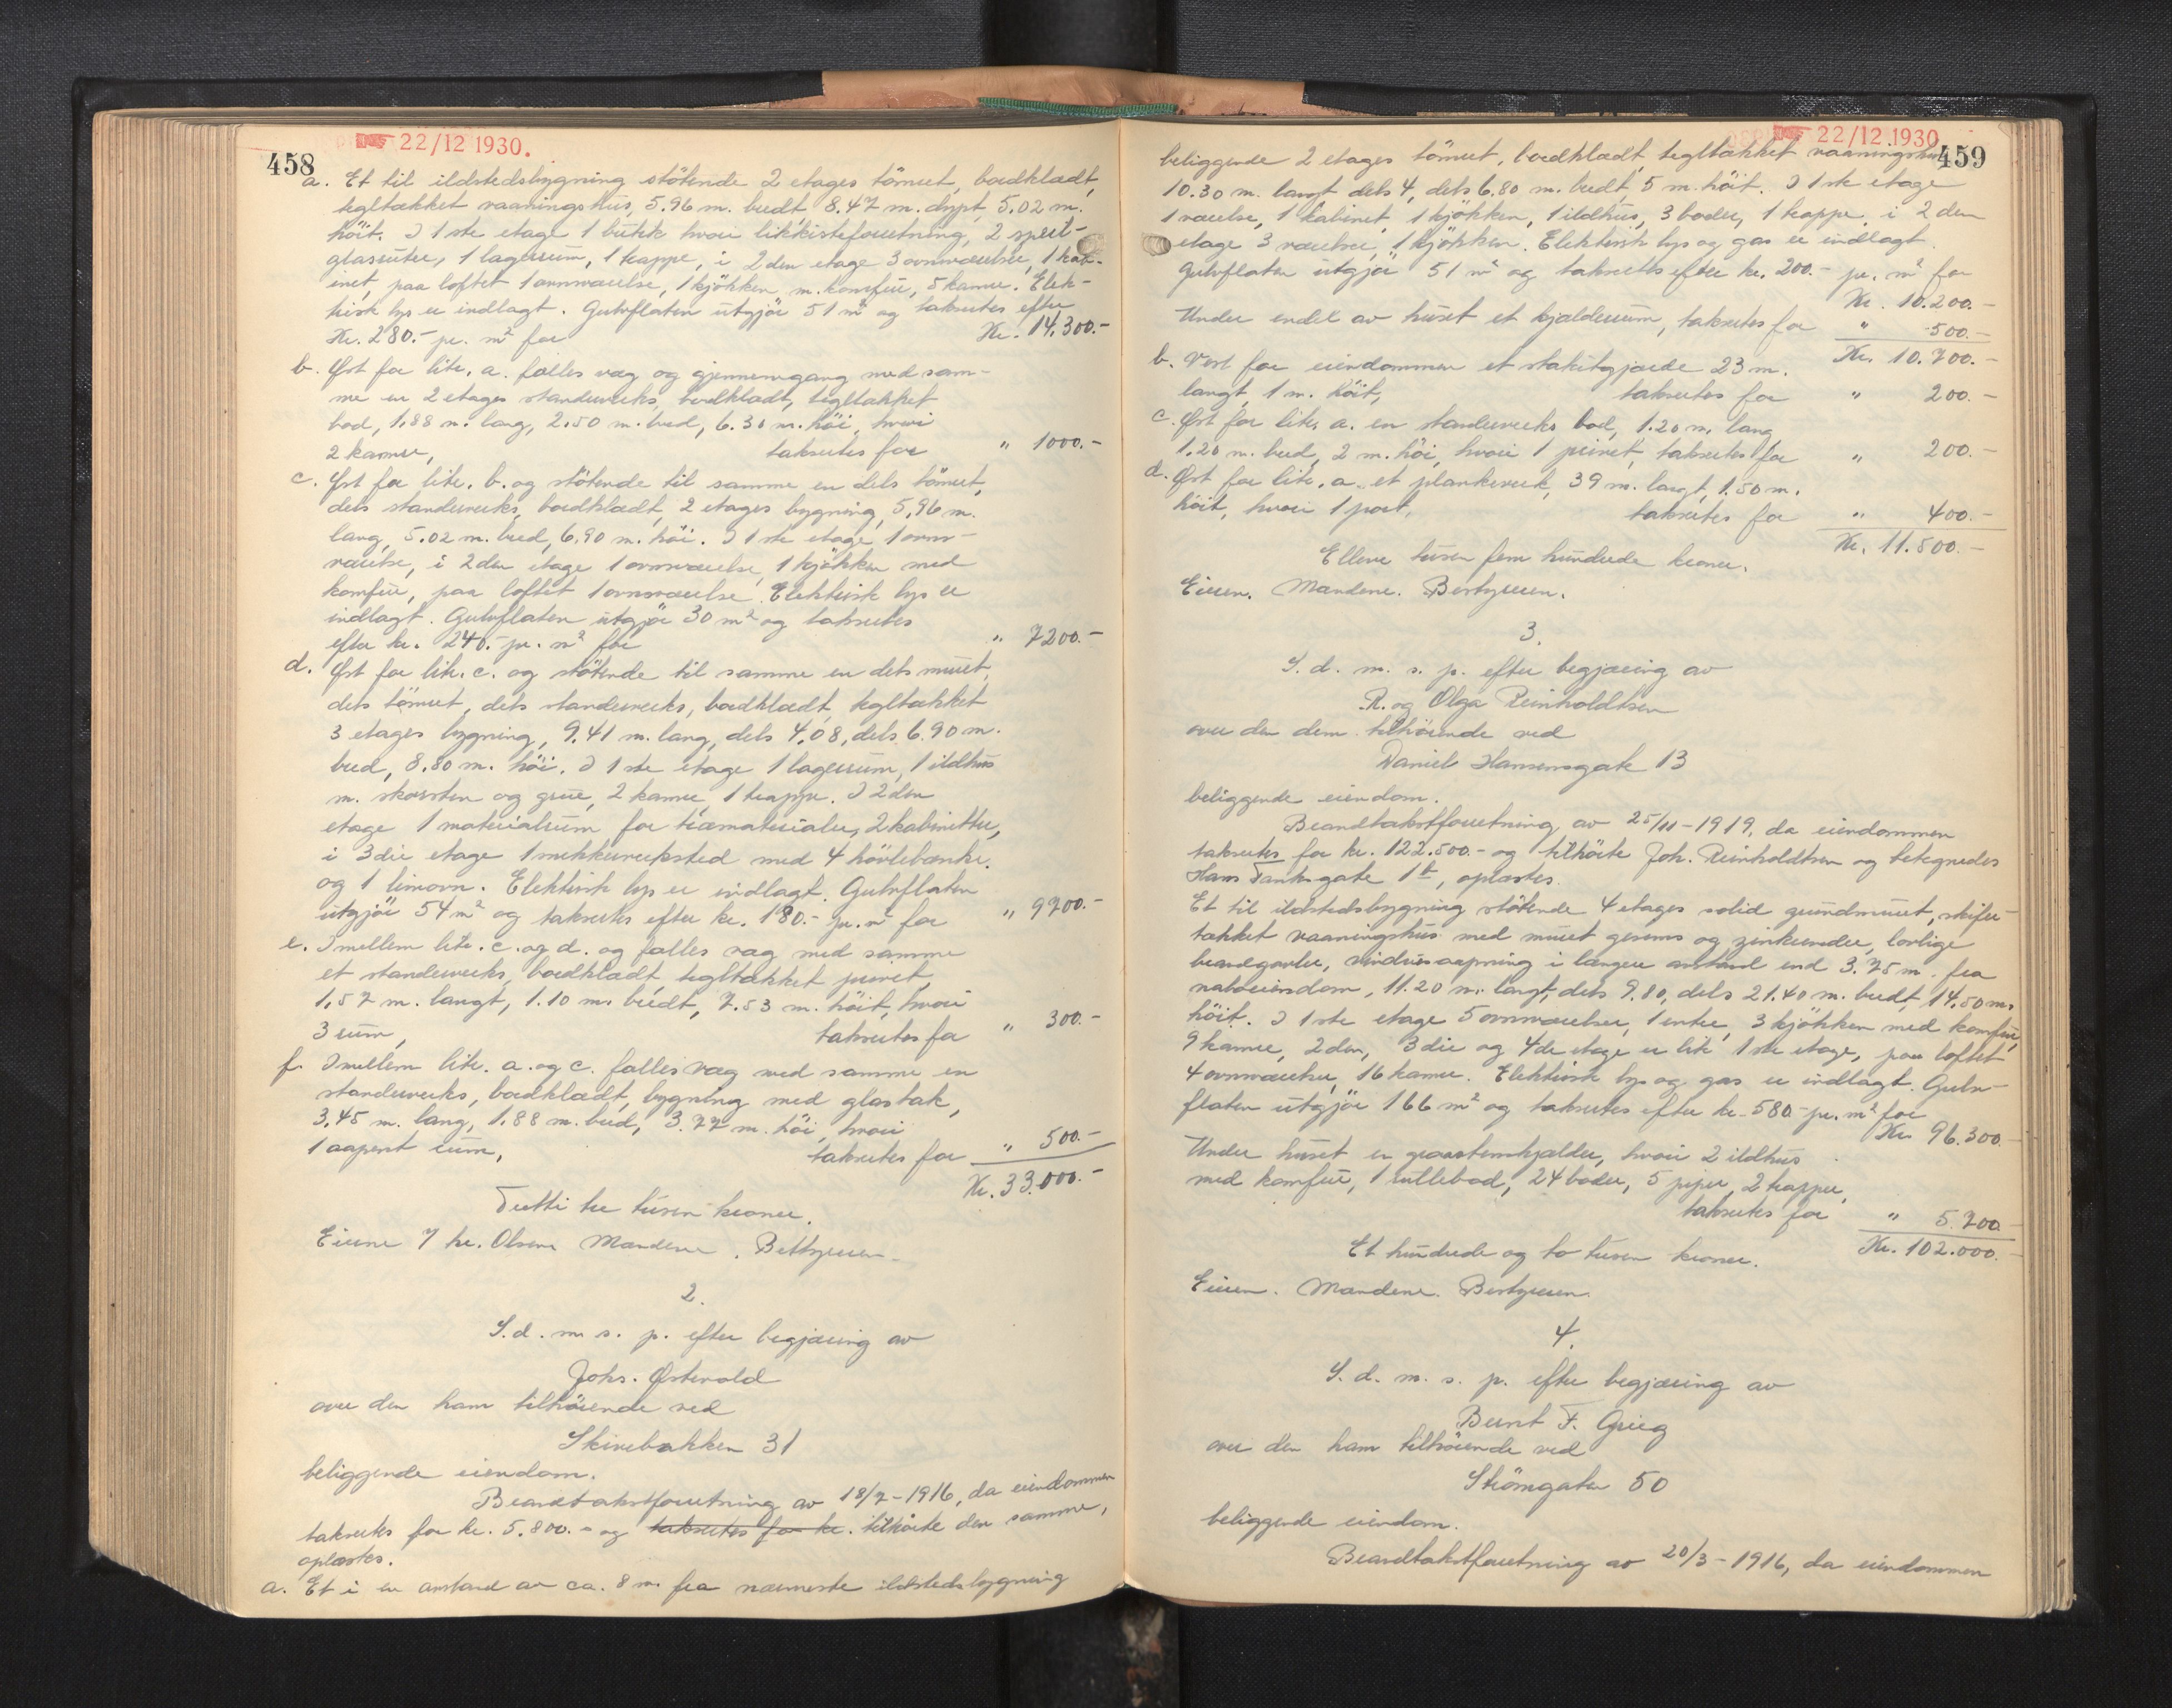 458
22/12 1930.
a. Et til ildstedsbygning stötende 2 etages tömret, bordklædt,
tegltækket vaaningshus, 5.96 m. bredt, 8.47 m. dypt, 5.02 m.
höit. I 1ste etage 1 butik hvori likkisteforretning, 2 speil-
glasruter, 1 lagerrum, 1 trappe, i 2den etage 3 ovnsværelser, 1 kab-
inet, paa loftet 1 ovnsværelse, 1 kjökken m. komfur, 5 kamre. Elek-
trisk lys er indlagt. Gulvflaten utgjör 51 m² og takseres efter
Kr. 280.- pr. m² for Kr. 14.300.-
b. Øst for litr. a. fælles væg og gjennemgang med sam-
me en 2 etages standerverks, bordklædt, tegltækket
bod, 1,88 m. lang, 2.50 m. bred, 6.30 m. höi, hvori
2 kamre, takseres for " 1000.-
c. Øst for litr. b. og stötende til samme en dels tömret,
dels standerverks, bordklædt, 2 etages bygning, 5,96 m.
lang, 5.02 m. bred, 6.90 m. höi. I 1ste etage 1 ovns-
værelse, i 2den etage 1 ovnsværelse, 1 kjökken med
komfur, paa loftet 1 ovnsværelse. Elektrisk lys er
indlagt. Gulvflaten utgjör 30 m² og takseres
efter kr. 240.- pr. m² for " 7200.-
d. Øst for litr. c. og stötende til samme en dels muret,
dels tömret, dels standerverks, bordklædt, tegltækket
3 etages bygning, 9.41 m. lang, dels 4,08, dels 6.90 m.
bred, 8.80 m. höi. I 1ste etage 1 lagerrum, 1 ildhus
m. skorsten og grue, 2 kamre, 1 trappe. I 2den
etage 1 materialrum for træmaterialer, 2 kabinetter,
i 3die etage 1 snekkerverksted med 4 hövlebænke
og 1 limovn. Elektrisk lys er indlagt. Gulvflaten
utgjör 54 m² og takseres efter kr. 180.- pr. m² for " 9700.-
e. Imellem litr. c. og d. og fælles væg med samme
et standerverks, bordklædt, tegltækket privet,
1,57 m. langt, 1.10 m. bredt, 7.53 m. höit, hvori
3 rum, takseres for " 300.-
f. Imellem litr. a. og c. fælles væg med samme en
standerverks, bordklædt, bygning med glastak,
3,45 m. lang, 1.88 m. bred, 3.77 m. höi, hvori
1 aapent rum, takseres for " 500.-
Kr. 33.000.-
Tretti tre tusen kroner.
Eieren 7 kr. Olsen Mændene. Bestyreren
2.
S. d. m. s. p. efter begjæring av
Johs. Østervold
over den ham tilhörende ved
Skivebakken 31
beliggende eiendom.
Brandtakstforretning av 18/7-1916, da eiendommen
takseres for kr. 5.800.- og takseres for kr. tilhörte den samme,
oplæstes.
a. Et i en avstand av ca. 8 m. fra nærmeste ildstedsbygning
22/12 1930
459
beliggende 2 etages tömret, bordklædt, tegltækket vaaningshus
10.30 m. langt, dels 4, dels 6.80 m. bredt, 5 m. höit. I 1ste etage
1 værelse, 1 kabinet, 1 kjökken, 1 ildhus, 3 boder, 1 trappe, i 2den
etage 3 værelser, 1 kjökken. Elektrisk lys og gas er indlagt.
Gulvflaten utgjör 51 m² og takseres efter kr. 200.- pr. m² for
Kr. 10.200.-
Under endel av huset et kjælderrum, takseres for " 500.-
Kr. 10.700.-
b. Vest for eiendommen et stakitgjærde 23 m.
langt, 1 m. höit, takseres for " 200.-
c. Øst for litr. a. en standerverks bod, 1.20 m. lang
1.20 m. bred, 2 m. höi, hvori 1 privet, takseres for " 200.-
d. Øst for litr. a. et plankeverk, 39 m. langt, 1.50 m.
höit, hvori 1 port, takseres for " 400.-
Kr. 11.500.-
Elleve tusen fem hundrede kroner.
Eieren. Mændene. Bestyreren.
3.
S. d. m. s. p. efter begjæring av
R. og Olga Reinholdtsen
over den dem tilhörende ved
Daniel Hansensgate 13
beliggende eiendom.
Brandtakstforretning av 25/11-1919, da eiendommen
takseres for kr. 122.500.- og tilhörte Joh. Reinholdtsen og betegnedes
Hans Tanksgate 1b, oplæstes.
Et til ildstedsbygning stötende 4 etages solid grundmuret, skifer-
tækket vaaningshus med muret gesims og zinkrender, lovlige
brandgavler, vindusaapning i længere avstand end 3.75 m. fra
naboeiendom, 11.20 m. langt, dels 9.80, dels 21.40 m. bredt, 14.50 m.
höit. I 1ste etage 5 ovnsværelser, 1 entre, 3 kjökken med komfur,
9 kamre, 2den, 3die og 4de etage er lik 1ste etage, paa loftet
4 ovnsværelser, 16 kamre. Elektrisk lys og gas er indlagt. Gulv-
flaten utgjör 166 m² og takseres efter kr. 580.- pr. m² for
Kr. 96.300.-
Under huset en graastenskjælder, hvori 2 ildhus
med komfur, 1 rullebod, 24 boder, 5 piper, 2 trapper,
takseres for " 5.700
Kr. 102.000.-
Et hundrede og to tusen kroner.
Eieren. Mændene. Bestyreren.
4.
S. d. m. s. p. efter begjæring av
Bernt F. Grieg
over den ham tilhörende ved
Strömgaten 50
beliggende eiendom.
Brandtakstforretning av 20/3-1916, da eiendommen